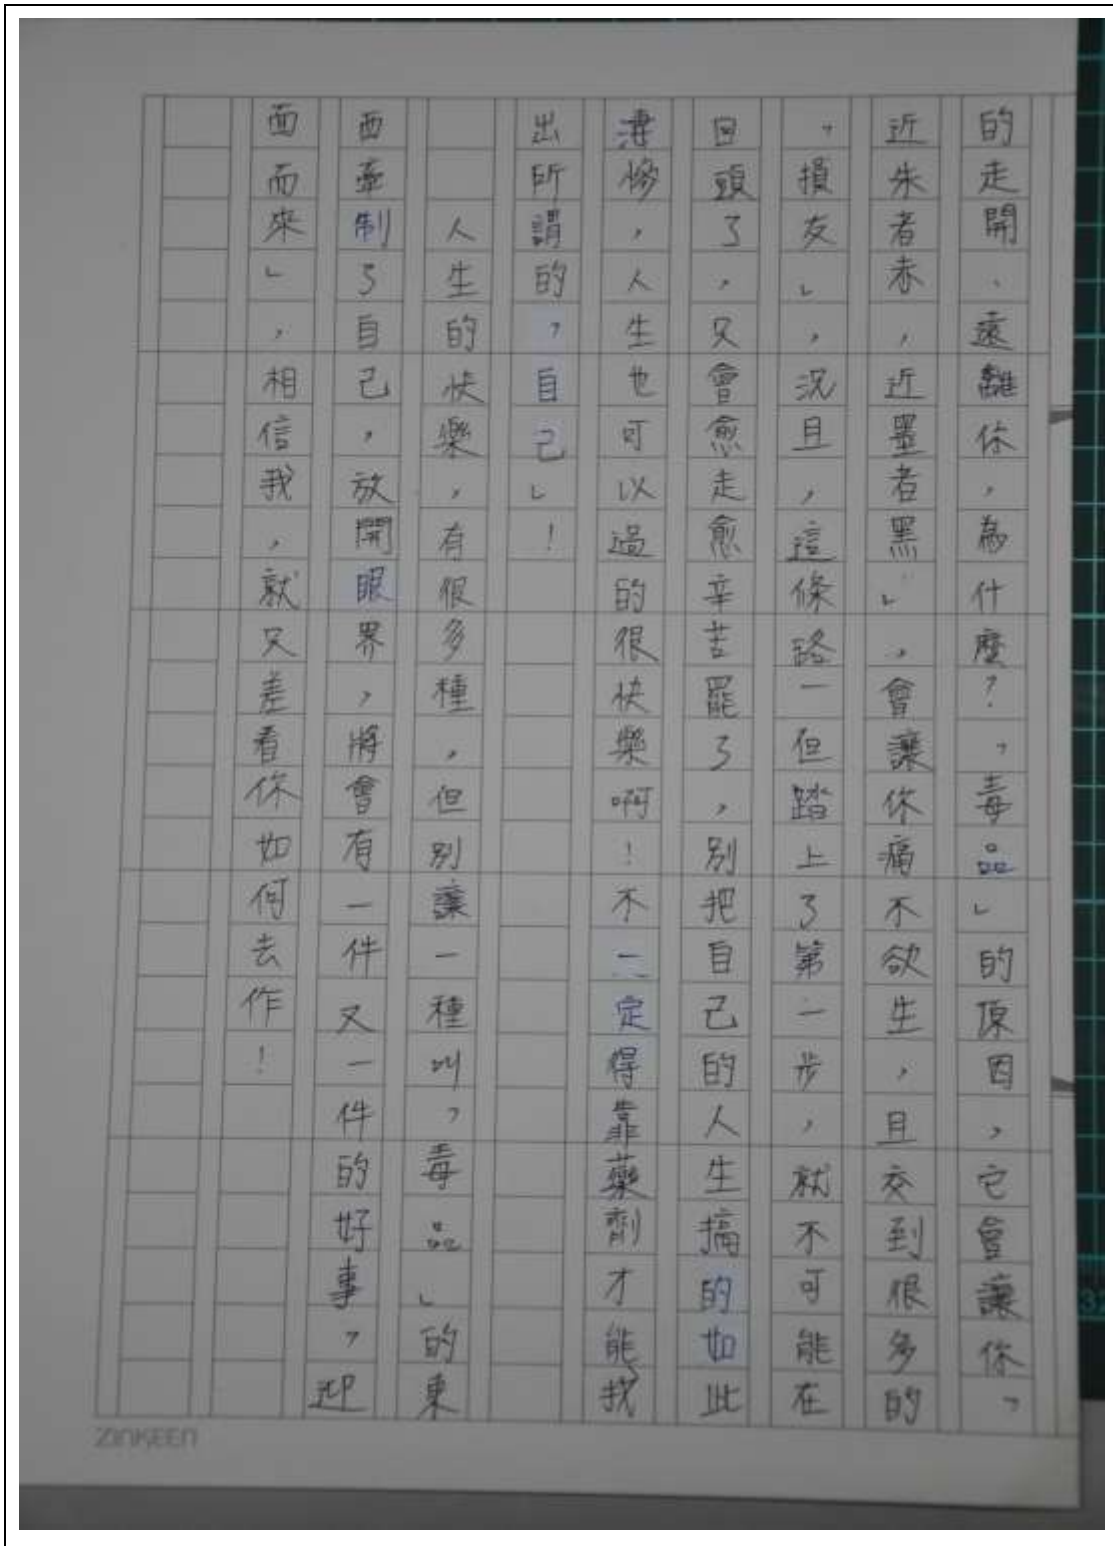 的走開、遠離你，為什麼？「毒品」的原因，它會讓你「
近朱者赤，近墨者黑」，會讓你痛不欲生，且交到很多的
「損友」，況且，這條路一但踏上了第一步，就不可能在
回頭了，只會愈走愈辛苦罷了，別把自己的人生搞的如此
淒慘，人生也可以過的很快樂啊！不一定得靠藥劑才能找
出所謂的「自己」！
人生的快樂，有很多種，但別讓一種叫「毒品」的東
西牽制了自己，放開眼界，將會有一件又一件的好事「迎
面而來」，相信我，就只差看你如何去作！
ZINKEEN